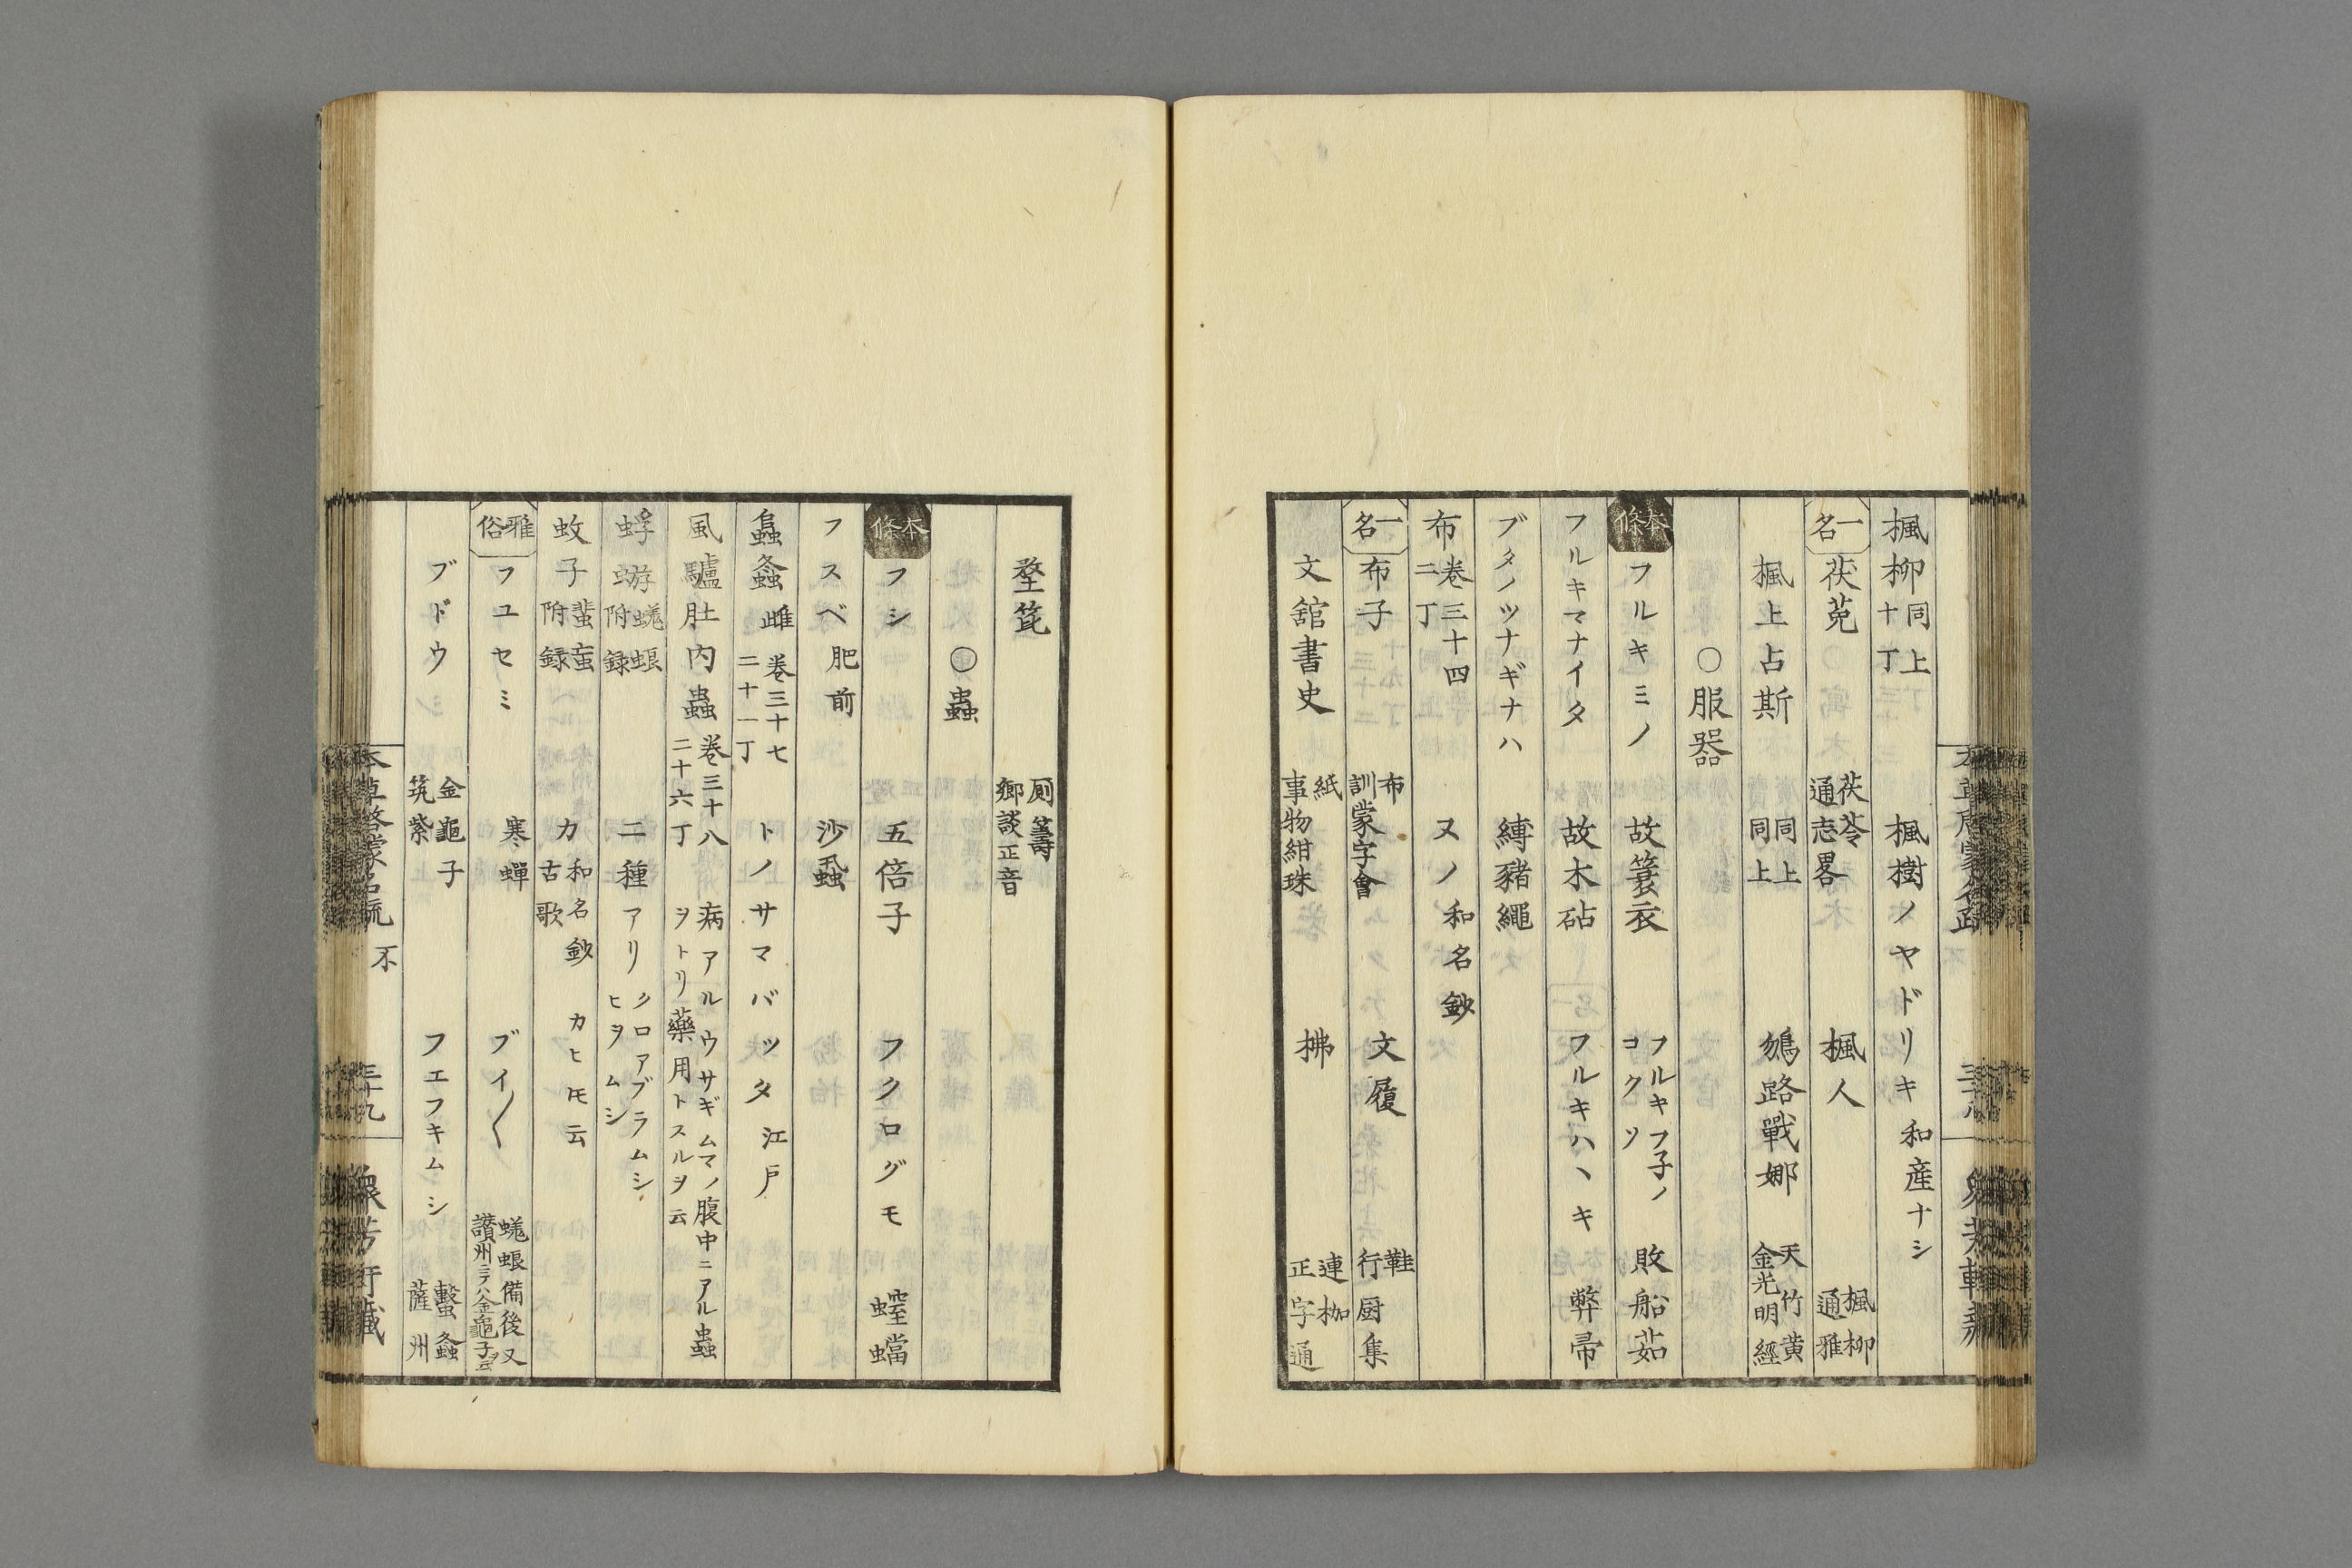 楓柳 同上十丁 楓樹ノヤドリキ和産ナシ
一名 茯菟 茯苓通志畧 楓人 楓柳通雅
楓上占斯 同上同上 鳻路戰娜 天竹黄金光明經
○服器
本條 フルキミノ 故簑衣 フルキフ子ノコクソ 敗船茹
フルキマナイタ 故木砧 フルキハヽキ 弊帚
ブタノツナギナハ 縛豬繩
布 卷三十四二丁 ヌノ 和名鈔
一名 布子 布訓蒙字會 文履 鞋行厨集
文舘書史 紙事物紺珠 拂 連枷正字通
堥䇢 厠籌鄉談正音
○蟲
本條 フシ 五倍子 フクロクモ 螲蟷
フスベ 肥前 沙蝨
蟲螽 雌 卷三十七二十一丁 トノサマバッタ 江戸
風驢肚内蟲 卷三十八二十六丁 病アルウサギムマノ腹中ニアル蟲ヲトリ藥用トスルヲ云
蜉蝣 蜣蜋附録 二種アリ クロアブラムシヒヲムシ
蚊子 蜚䖟附録 カ 和名鈔古歌 カヒモ云
雅俗 フユセミ 寒蟬 ブイ〱 蜣蜋備後又讃州ニテハ金龜子ヲ云
ブドウ 金龜子筑紫 フエフキムシ 螽薩州
本草啓蒙名疏 不 三十九
三十八